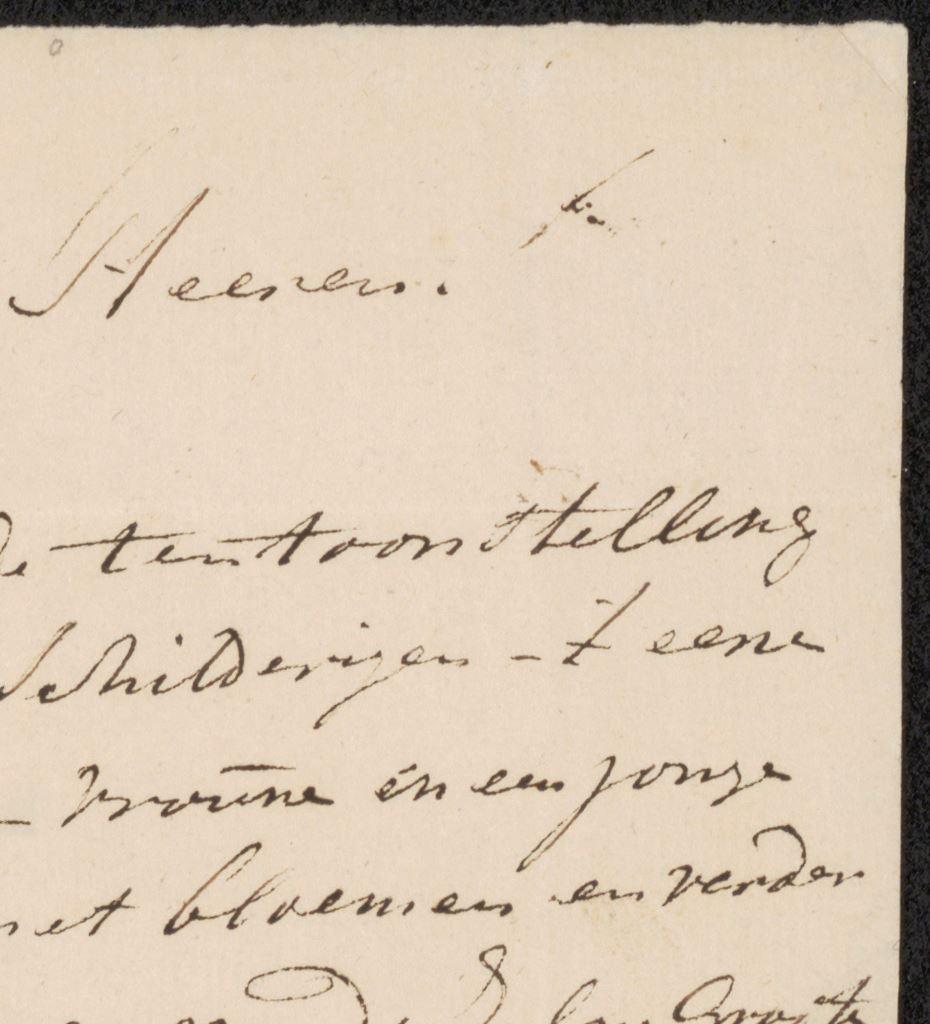 Heeren.
de tentoonstelling
Schilderijen - t eene
vrouwe en een jonge
met bloemen en verder